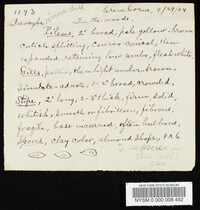 1193 Crem borne, 9/29/04
In the woods.
Pileus, 2" broad, pale yellow-brown
Cuticle splitting, convex-conical, then
expanded, retaining low umbo, flesh white
Gills, paler than light under-brown,
sinuate-adnate, 1-2" broad, crowded,
Stipe 2" long, 2-3" thick, firm, solid,
whitish, smooth or fibrillose, fibrous,
fragile, base incurved, often bulbous.
Spores, clay color, almond shape, 9 x 6
NEW YORK STATE MUSEUM
NYSM 0 000 008 492